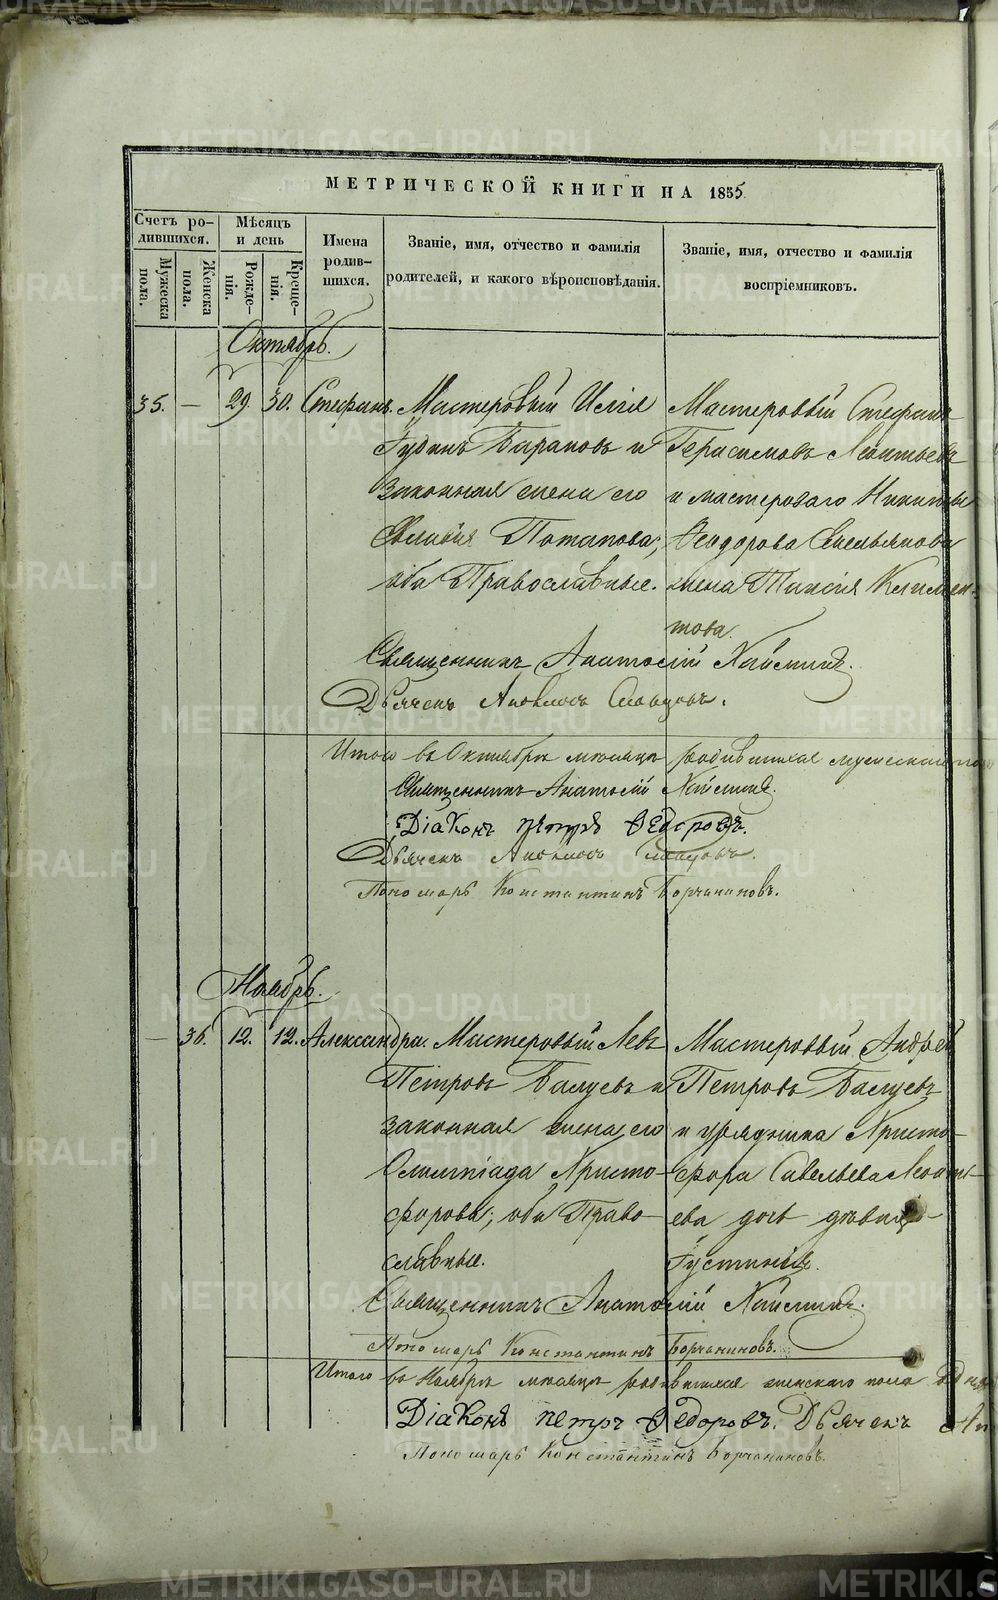 МЕТРИЧЕСКОЙ КНИГИ НА 1855
Счетъ ро-
дившихся.
Мужеска
пола.
Женска
пола.
Мѣсяцъ
и день
Рожде-
нія.
Креще-
нія.
Имена
родив-
шихся.
Званіе, имя, отчество и фамилія
родителей, и какого вѣроисповѣданія.
Званіе, имя, отчество и фамилія
воспріемниковъ.
Октябрь.
35. — 29 30. Стефанъ.
Мастеровый Илія
Барановъ и
законная жена его
Потапова;
оба Православные.
Мастеровый Стефанъ
Герасимовъ Леонтьевъ
и мастероваго Никиты
Ѳеодорова Емельянова
жена Таисія Климен-
това.
Священникъ Анатолій
Дьячекъ
Итого въ Октябрѣ мѣсяцѣ родившихся мужескаго пола
Священникъ Анатолій
Діаконъ Петръ Ѳедоровъ.
Дьячекъ
Пономарь Константинъ Борчаниновъ.
Ноябрь.
— 36. 12. 12. Александра.
Мастеровый Левъ
Петровъ Балуевъ и
законная жена его
Олимпіада Христо-
форова; оба Право-
славные.
Мастеровый Андрей
Петровъ Балуевъ
и урядника Христо-
фора Савельева Леонть-
ева дочь дѣвица
Густинія.
Священникъ Анатолій
Пономарь Константинъ Борчаниновъ.
Итого въ Ноябрѣ мѣсяцѣ родившихся женскаго пола одна
Діаконъ Петръ Ѳедоровъ. Дьячекъ
Пономарь Константинъ Борчаниновъ.
METRIKI.GASO-URAL.RU